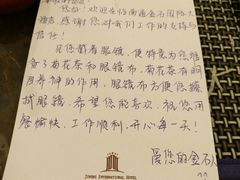 您好！欢迎来信南通金石国际大
酒店，感谢您对我们工作的支持与
信任！
见您戴着眼镜，便特意为您准
备了菊花茶和眼镜布，菊花茶有明
目养神的作用，眼镜布方便您擦
拭眼镜，希望您能喜欢。祝您用
餐愉快，工作顺利，开心每一天！
爱您的金石人
JINSHI INTERNATIONAL HOTEL